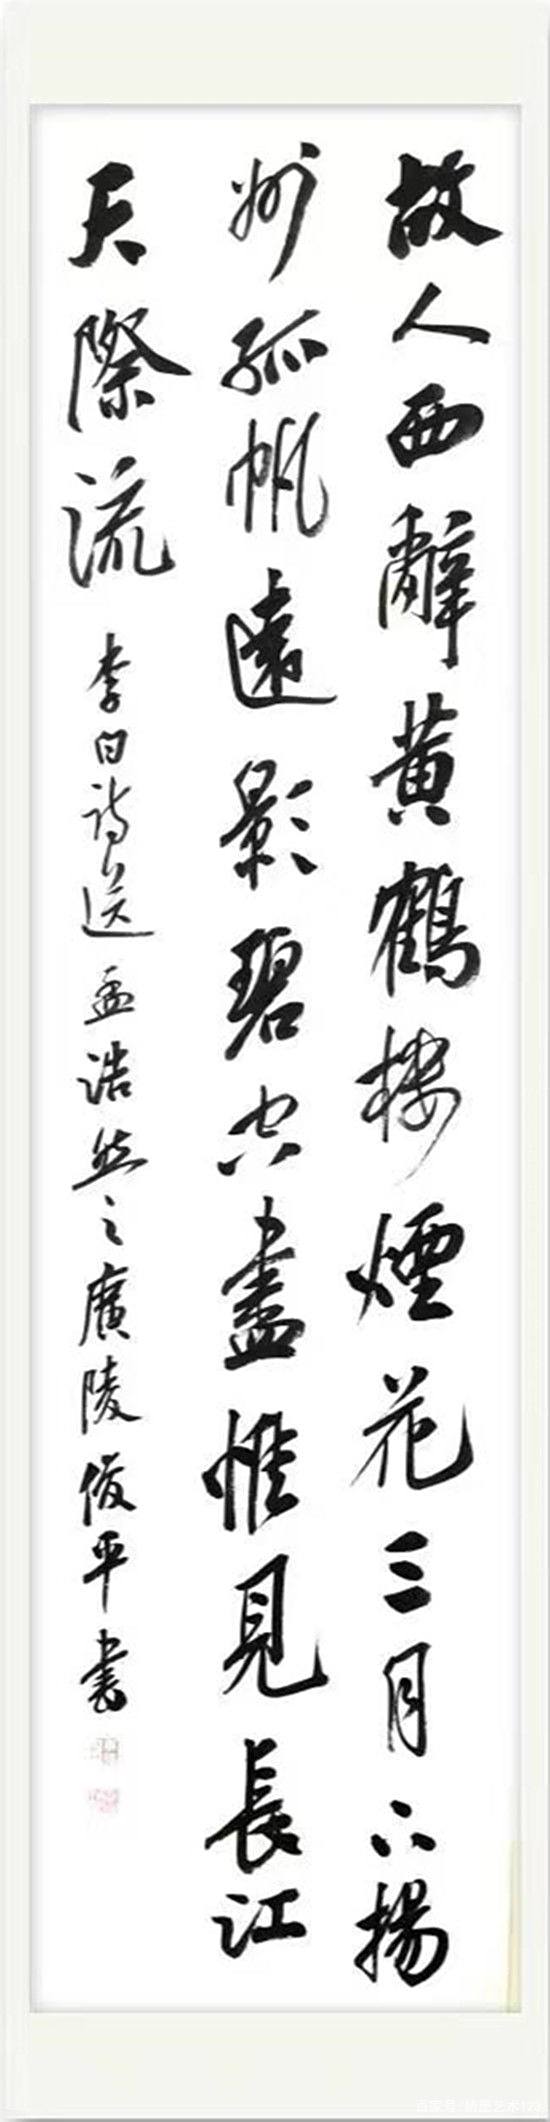 故人西辭黄鶴楼煙花三月下揚
州孤帆遠影碧空盡惟見長江
天際流
李白詩送孟浩然之廣陵俊平書